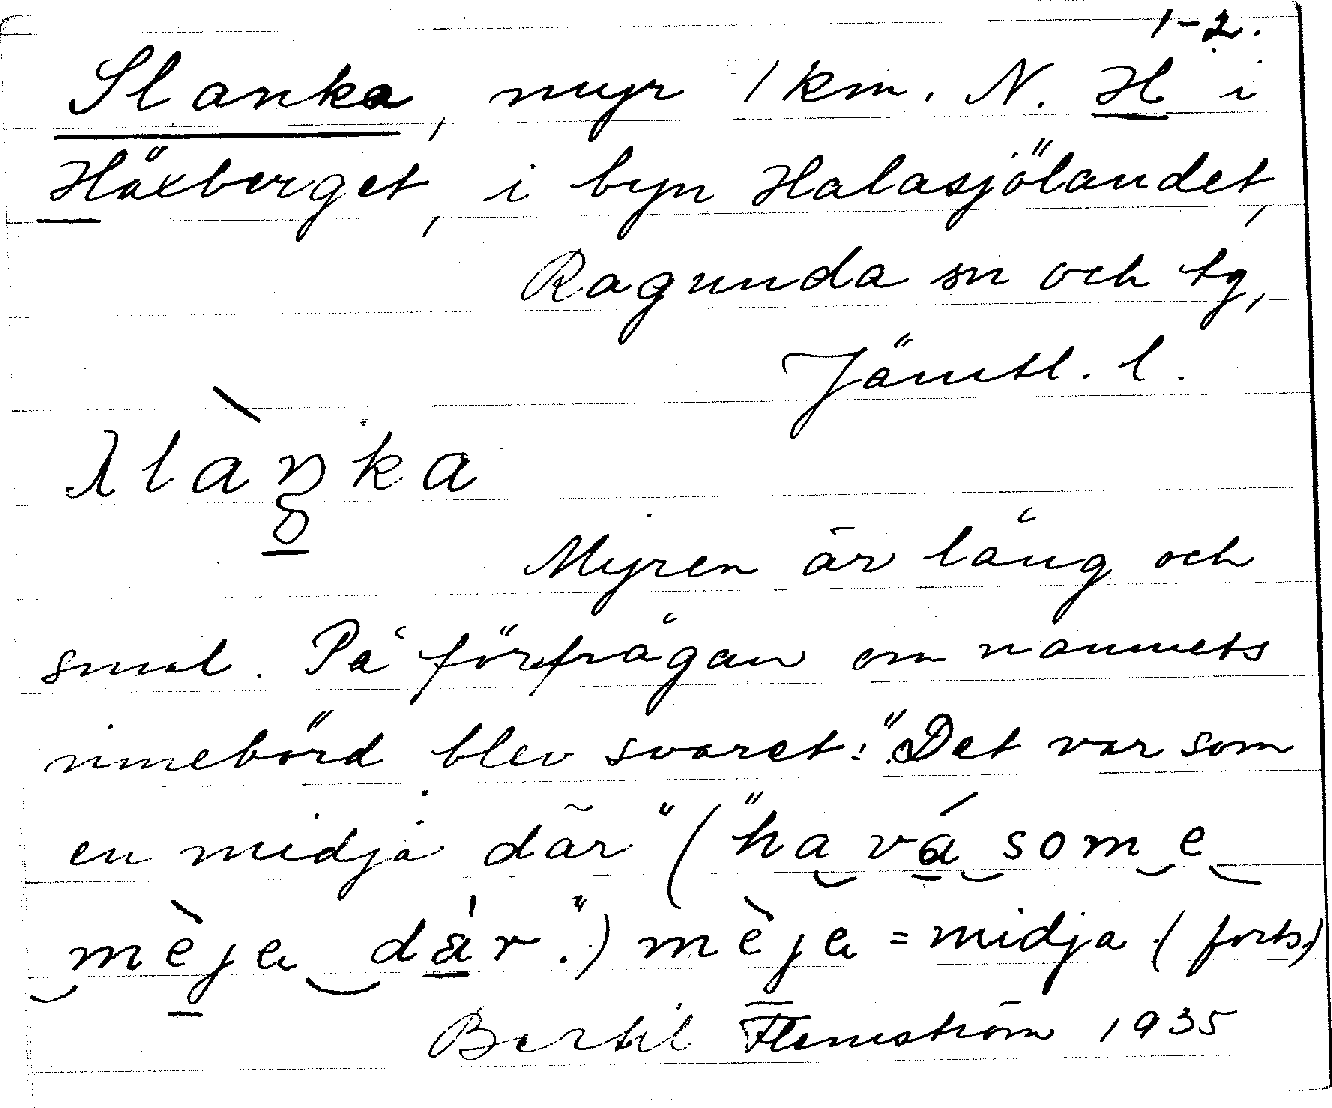 1-2.
Slanka, myr 1 km. N. H i
Häxberget, i byn Halasjölandet,
Ragunda sn och tg,
Jämtl. l.
slàŋka
Myren är lång och
smal. På förfrågan om namnets
innebörd blev svaret: "Det var som
en midja där" ("ha vá som e
mèja där".) mèja = midja. (forts.)
Bertil Flemström 1935